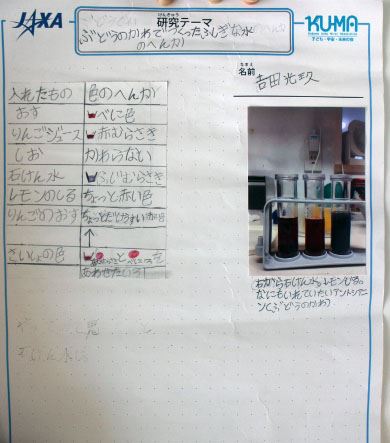 JAXA
けんきゅう
研究テーマ
KUMA
ぶどうのかわでつくったふしぎな水
のへんか
なまえ
名前
吉田光玖
入れたもの 色のへんか
おす べに色
りんごジュース 赤むらさき
しお かわらない
石けん水 ふじむらさき
レモンのしる ちょっと赤い色
りんごのおす ちょっとだけうすい赤色
↑
さいしょの色 と を
あわせたいろ!
右から石けん水、レモンじる。
なにもいれていないアントシアニ
ン(ぶどうのかわ)